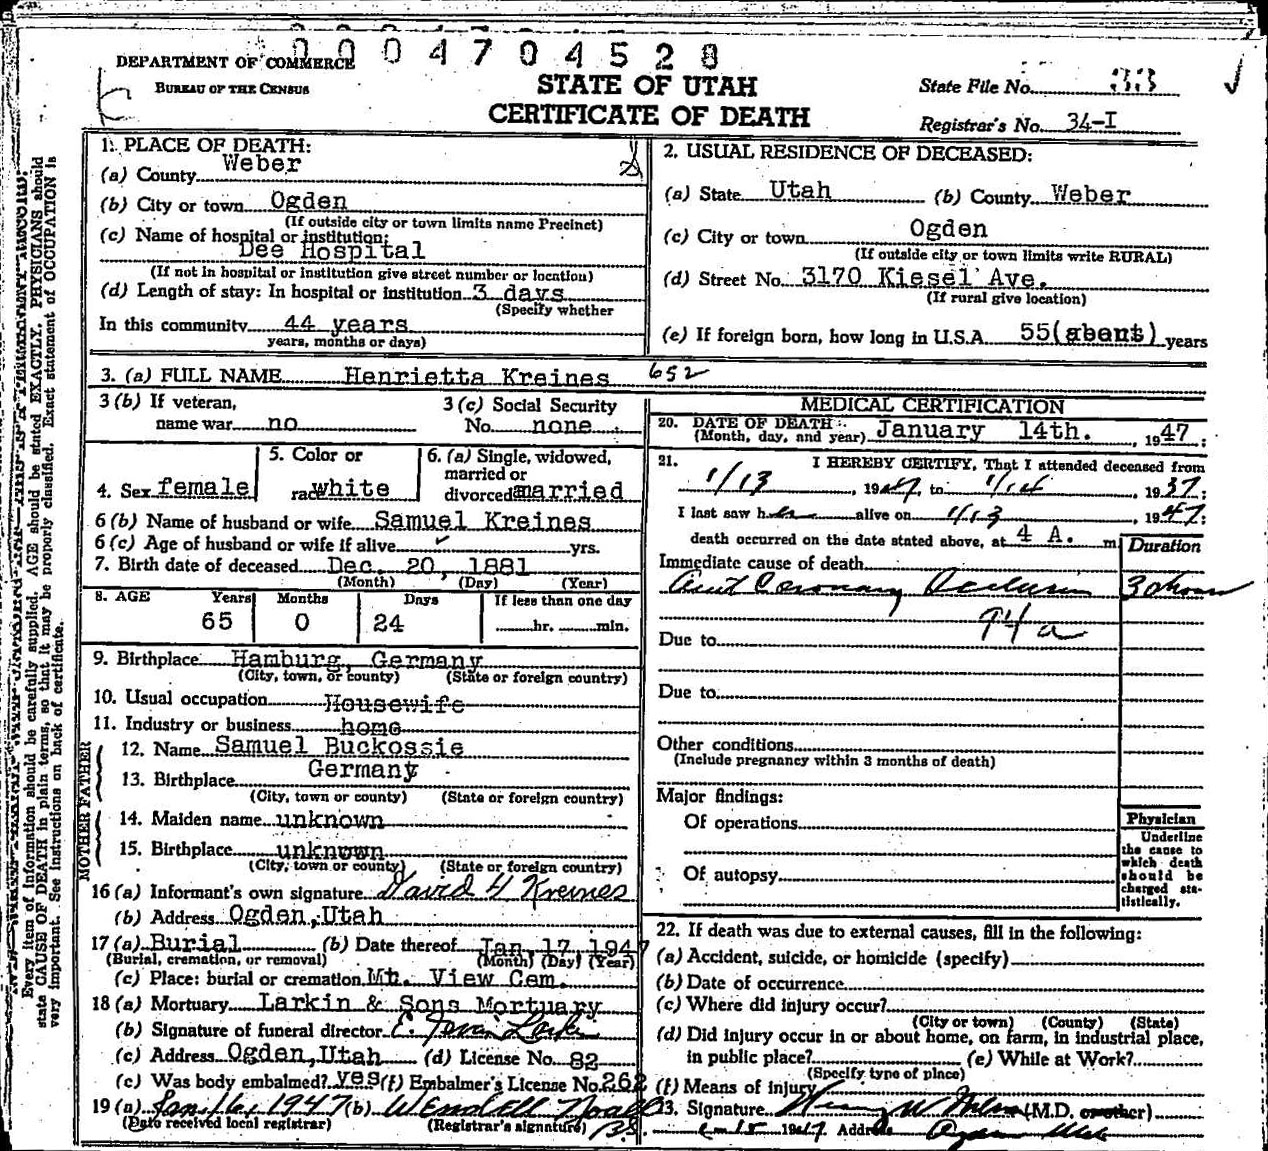 0004704528
DEPARTMENT OF COMMERCE
BUREAU OF THE CENSUS
STATE OF UTAH
CERTIFICATE OF DEATH
State File No. 33
Registrar's No. 34-I
1. PLACE OF DEATH:
(a) County Weber
(b) City or town Ogden
(If outside city or town limits name Precinct)
(c) Name of hospital or institution:
Dee Hospital
(If not in hospital or institution give street number or location)
(d) Length of stay: In hospital or institution 3 days
(Specify whether
In this community 44 years
years, months or days)
2. USUAL RESIDENCE OF DECEASED:
(a) State Utah (b) County Weber
(c) City or town Ogden
(If outside city or town limits write RURAL)
(d) Street No. 3170 Kiesel Ave.
(If rural give location)
(e) If foreign born, how long in U.S.A. 55(about) years
3. (a) FULL NAME Henrietta Kreines 652
3 (b) If veteran,
name war no
3 (c) Social Security
No. none
4. Sex female
5. Color or
race white
6. (a) Single, widowed,
married or
divorced married
6 (b) Name of husband or wife Samuel Kreines
6 (c) Age of husband or wife if alive yrs.
7. Birth date of deceased Dec. 20, 1881
(Month) (Day) (Year)
8. AGE Years Months Days If less than one day
65 0 24 hr. min.
9. Birthplace Hamburg, Germany
(City, town, or county) (State or foreign country)
10. Usual occupation Housewife
11. Industry or business home
FATHER
12. Name Samuel Buckossie
13. Birthplace Germany
(City, town or county) (State or foreign country)
MOTHER
14. Maiden name unknown
15. Birthplace unknown
(City, town or county) (State or foreign country)
16 (a) Informant's own signature David H Kreines
(b) Address Ogden, Utah
17 (a) Burial (b) Date thereof Jan. 17, 1947
(Burial, cremation, or removal) (Month) (Day) (Year)
(c) Place: burial or cremation Mt. View Cem.
18 (a) Mortuary Larkin & Sons Mortuary
(b) Signature of funeral director E. Larkin
(c) Address Ogden, Utah (d) License No. 82
(c) Was body embalmed? yes (f) Embalmer's License No. 262
19 (a) Jan. 16, 1947 (b) Wendell Noall
(Date received local registrar) (Registrar's signature)
MEDICAL CERTIFICATION
20. DATE OF DEATH:
(Month, day, and year) January 14th. , 1947;
21. I HEREBY CERTIFY, That I attended deceased from
1/13 , 1947, to 1/14 , 1937;
I last saw her alive on 1/13 , 1947;
death occurred on the date stated above, at 4 A. m
Duration
Immediate cause of death
Acut Coronary Occlusion 30 hours
94a
Due to
Due to
Other conditions
(Include pregnancy within 3 months of death)
Major findings:
Of operations
Of autopsy
Physician
Underline
the cause to
which death
should be
charged sta-
tistically.
22. If death was due to external causes, fill in the following:
(a) Accident, suicide, or homicide (specify)
(b) Date of occurrence
(c) Where did injury occur?
(City or town) (County) (State)
(d) Did injury occur in or about home, on farm, in industrial place,
in public place? (e) While at Work?
(Specify type of place)
(f) Means of injury
23. Signature (M.D. or other)
1947 Address Ogden Utah
Every item of information should be carefully supplied. AGE should be stated EXACTLY. PHYSICIANS should
state CAUSE OF DEATH in plain terms, so that it may be properly classified. Exact statement of OCCUPATION is
very important. See instructions on back of certificate.